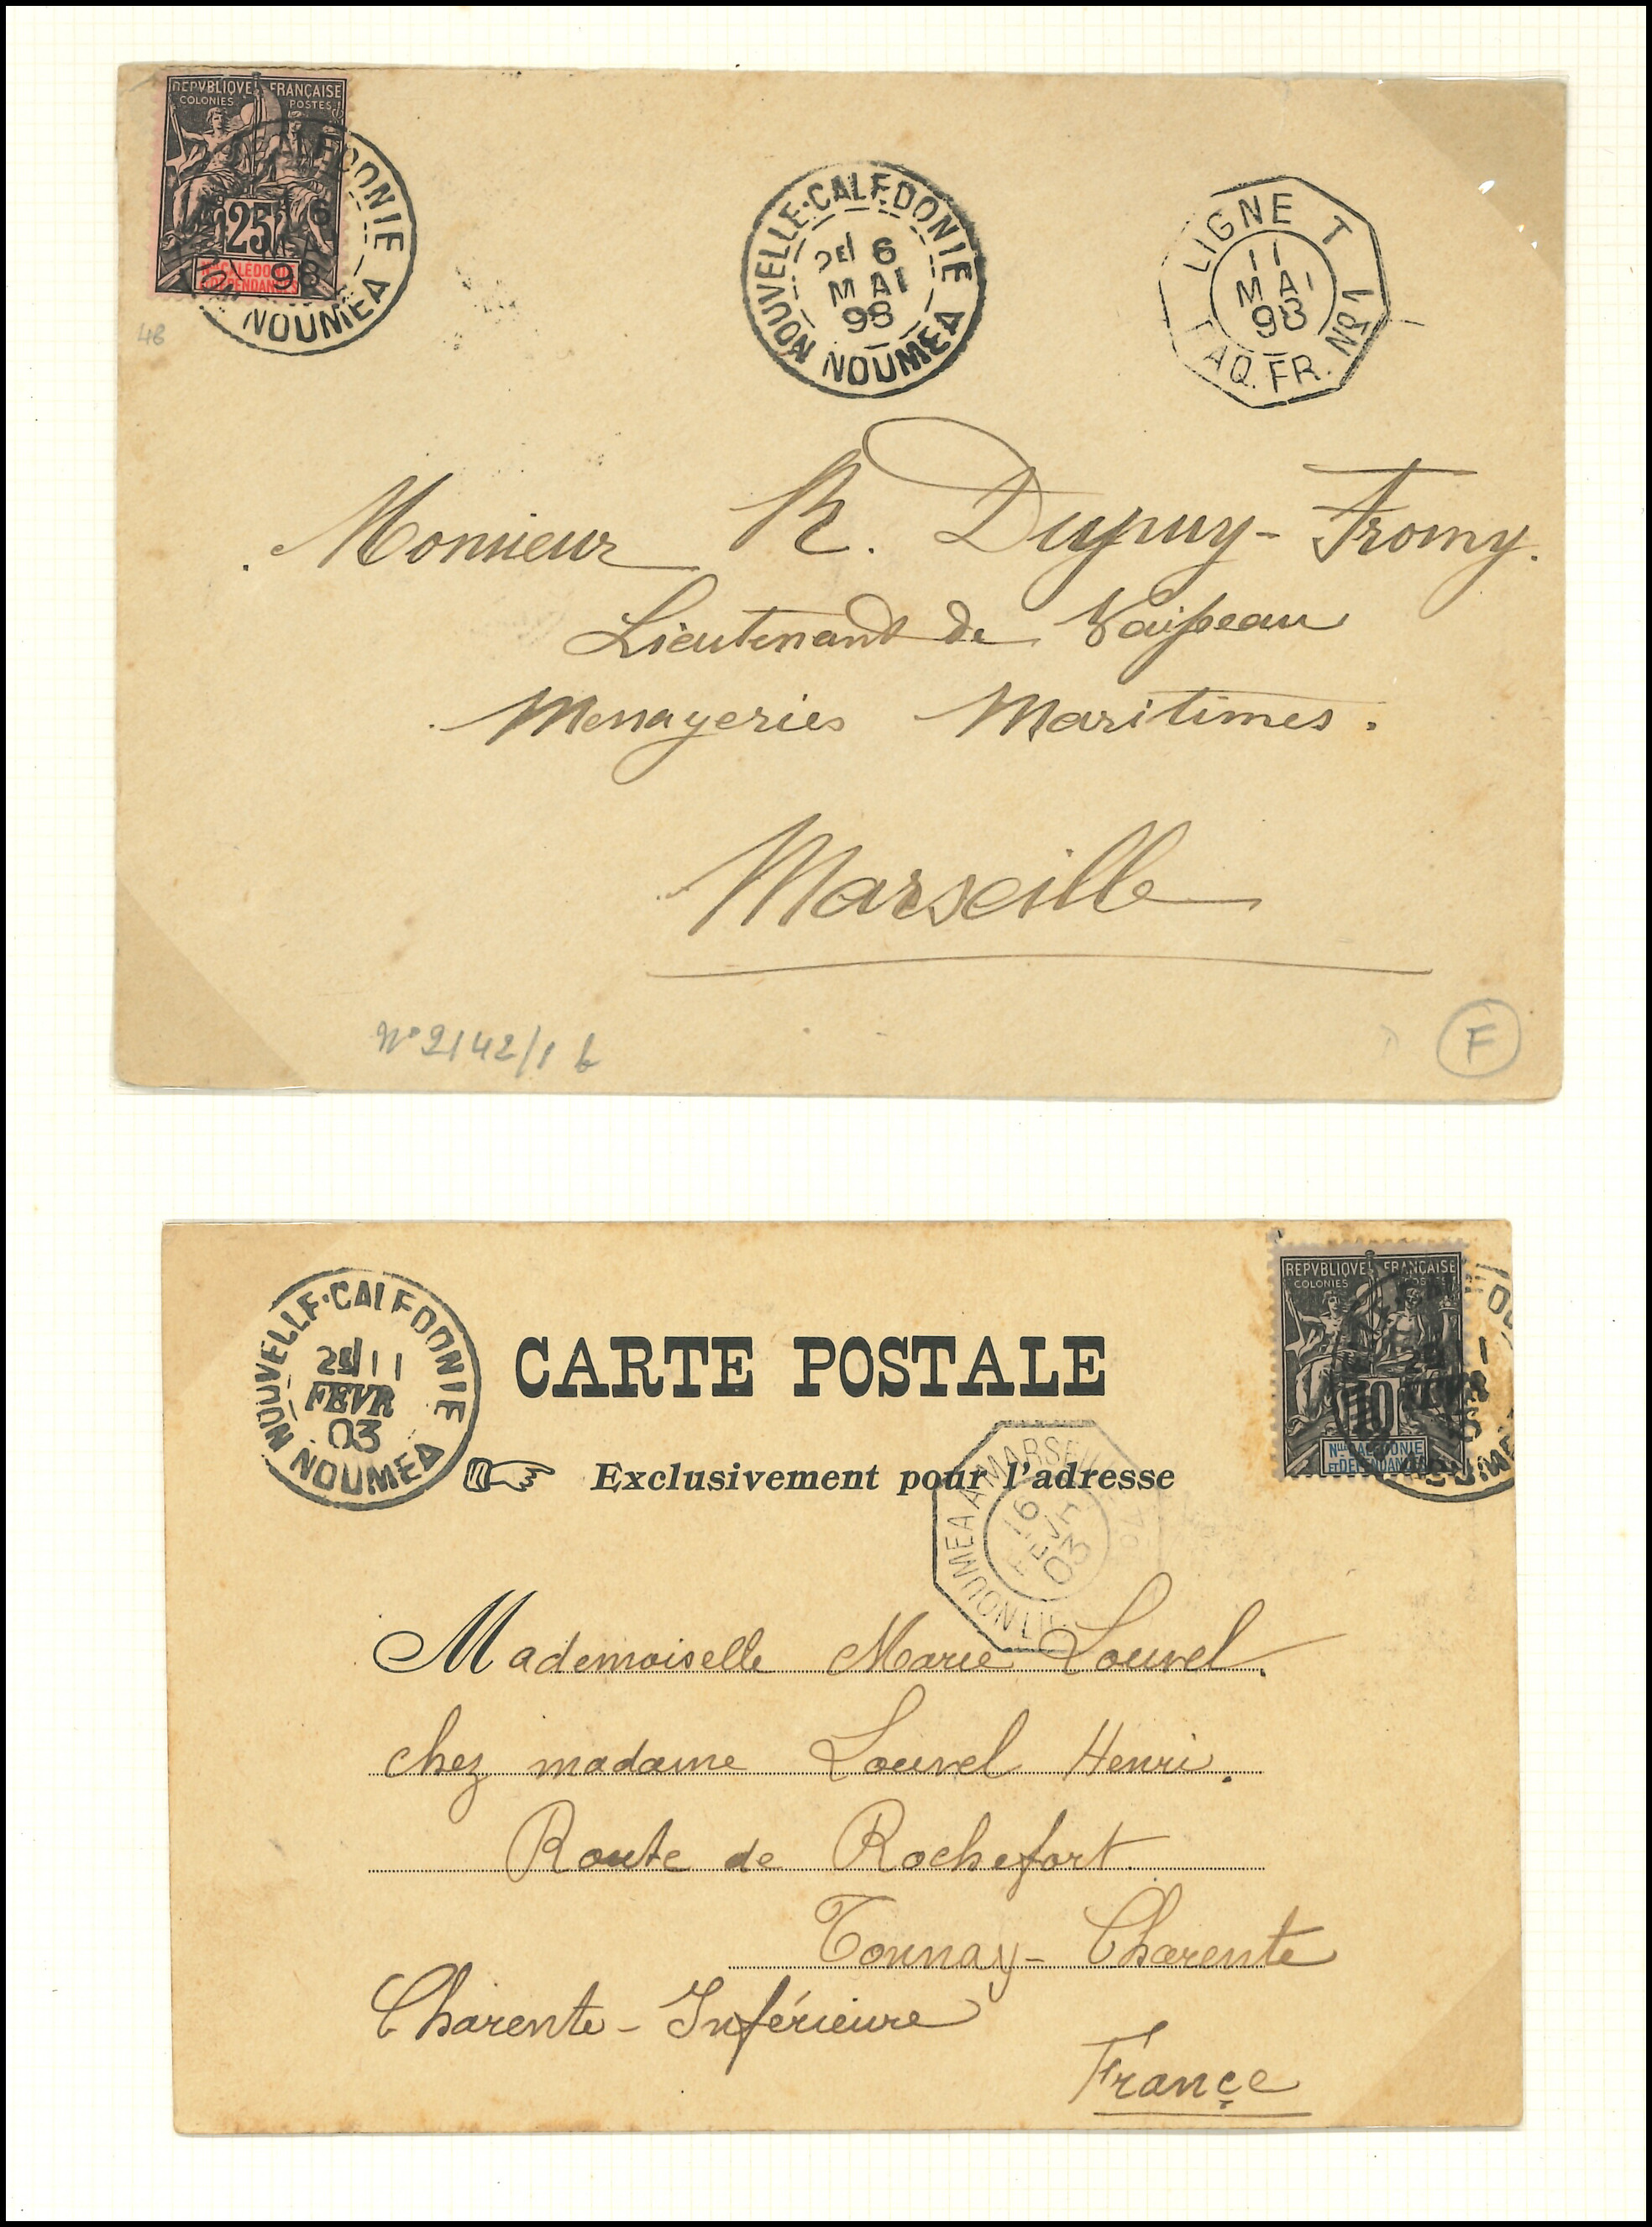 REPVBLIQVE FRANÇAISE
COLONIES POSTES
25
Nlle CALÉDONIE
ET DÉPENDANCES
NOUMEA
NOUVELLE-CALEDONIE
6
MAI
98
NOUMEA
LIGNE T
11
MAI
98
PAQ. FR. Nº 1
48
Monsieur R. Dupuy-Fromy.
Lieutenant de Vaisseau
Messageries Maritimes.
Marseille
Nº 2142/1 b
F
NOUVELLE-CALEDONIE
2E/11
FEVR
03
NOUMEA
CARTE POSTALE
Exclusivement pour l'adresse
REPVBLIQVE FRANÇAISE
COLONIES POSTES
10
Nlle CALÉDONIE
ET DÉPENDANCES
NOUMEA A MARSEILLE
16
FEVR
03
Mademoiselle Marie Louvel.
chez madame Louvel Henri.
Route de Rochefort
Tonnay-Charente
Charente-Inférieure
France